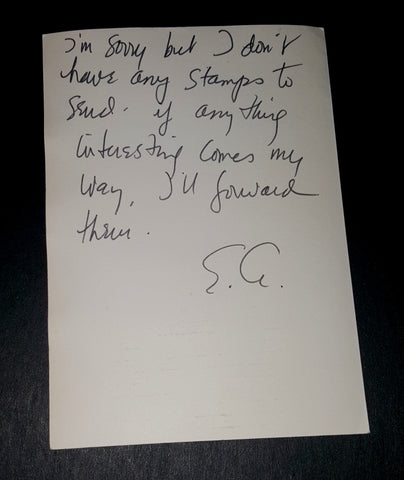 I'm sorry but I don't
have any stamps to
send. if anything
interesting comes my
way, I'll forward
them.
E.G.